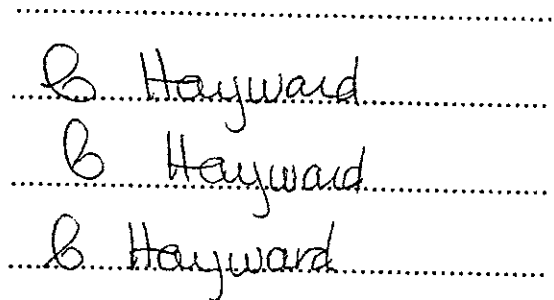 C Hayward
C Hayward
C Hayward